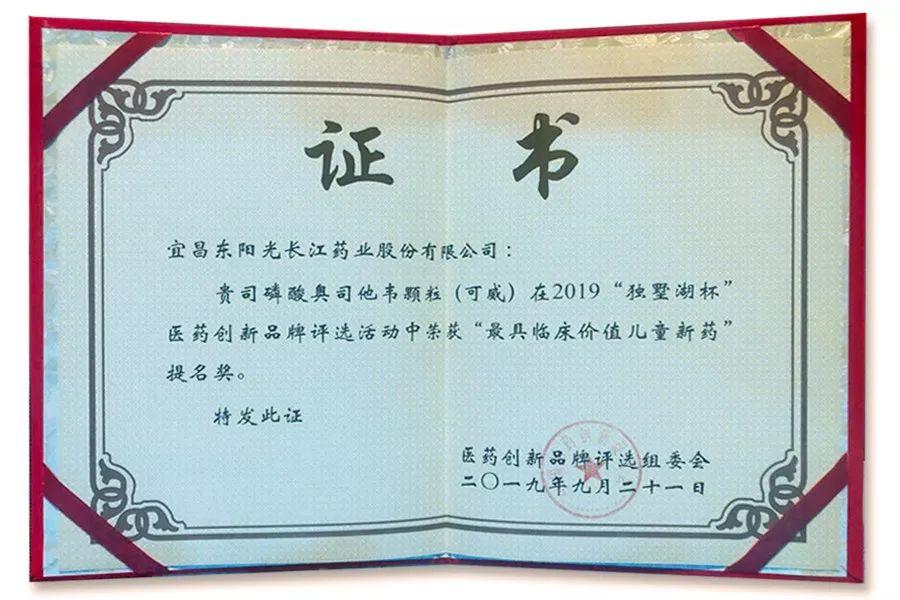 证 书
宜昌东阳光长江药业股份有限公司：
贵司磷酸奥司他韦颗粒（可威）在2019“独墅湖杯”
医药创新品牌评选活动中荣获“最具临床价值儿童新药”
提名奖。
特发此证
医药创新品牌评选组委会
二〇一九年九月二十一日